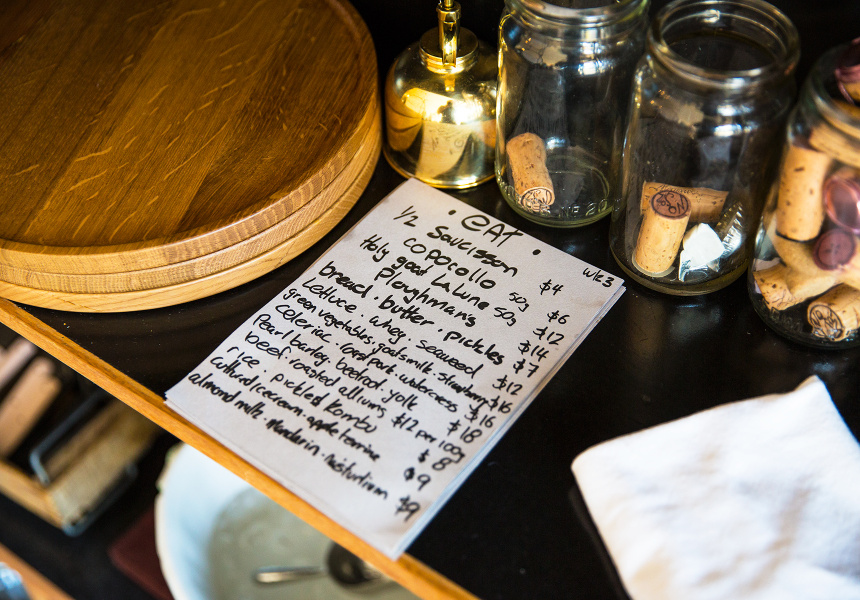 · eat ·
wk3
1/2 Saucisson $4
Copocollo 50g $6
Holy goat La Lune 50g $12
ploughman's $14
bread . butter . pickles $7
Lettuce . whey . seaweed $12
green vegetables, goats milk . strawberry $16
Celeriac . roast pork . watercress $16
Pearl barley . beetroot . yolk $18
beef . roasted alliums $12 per 100g
rice . pickled Kombu $8
cultured icecream . apple terrine $9
almond milk . mandarin . nasturtium $9